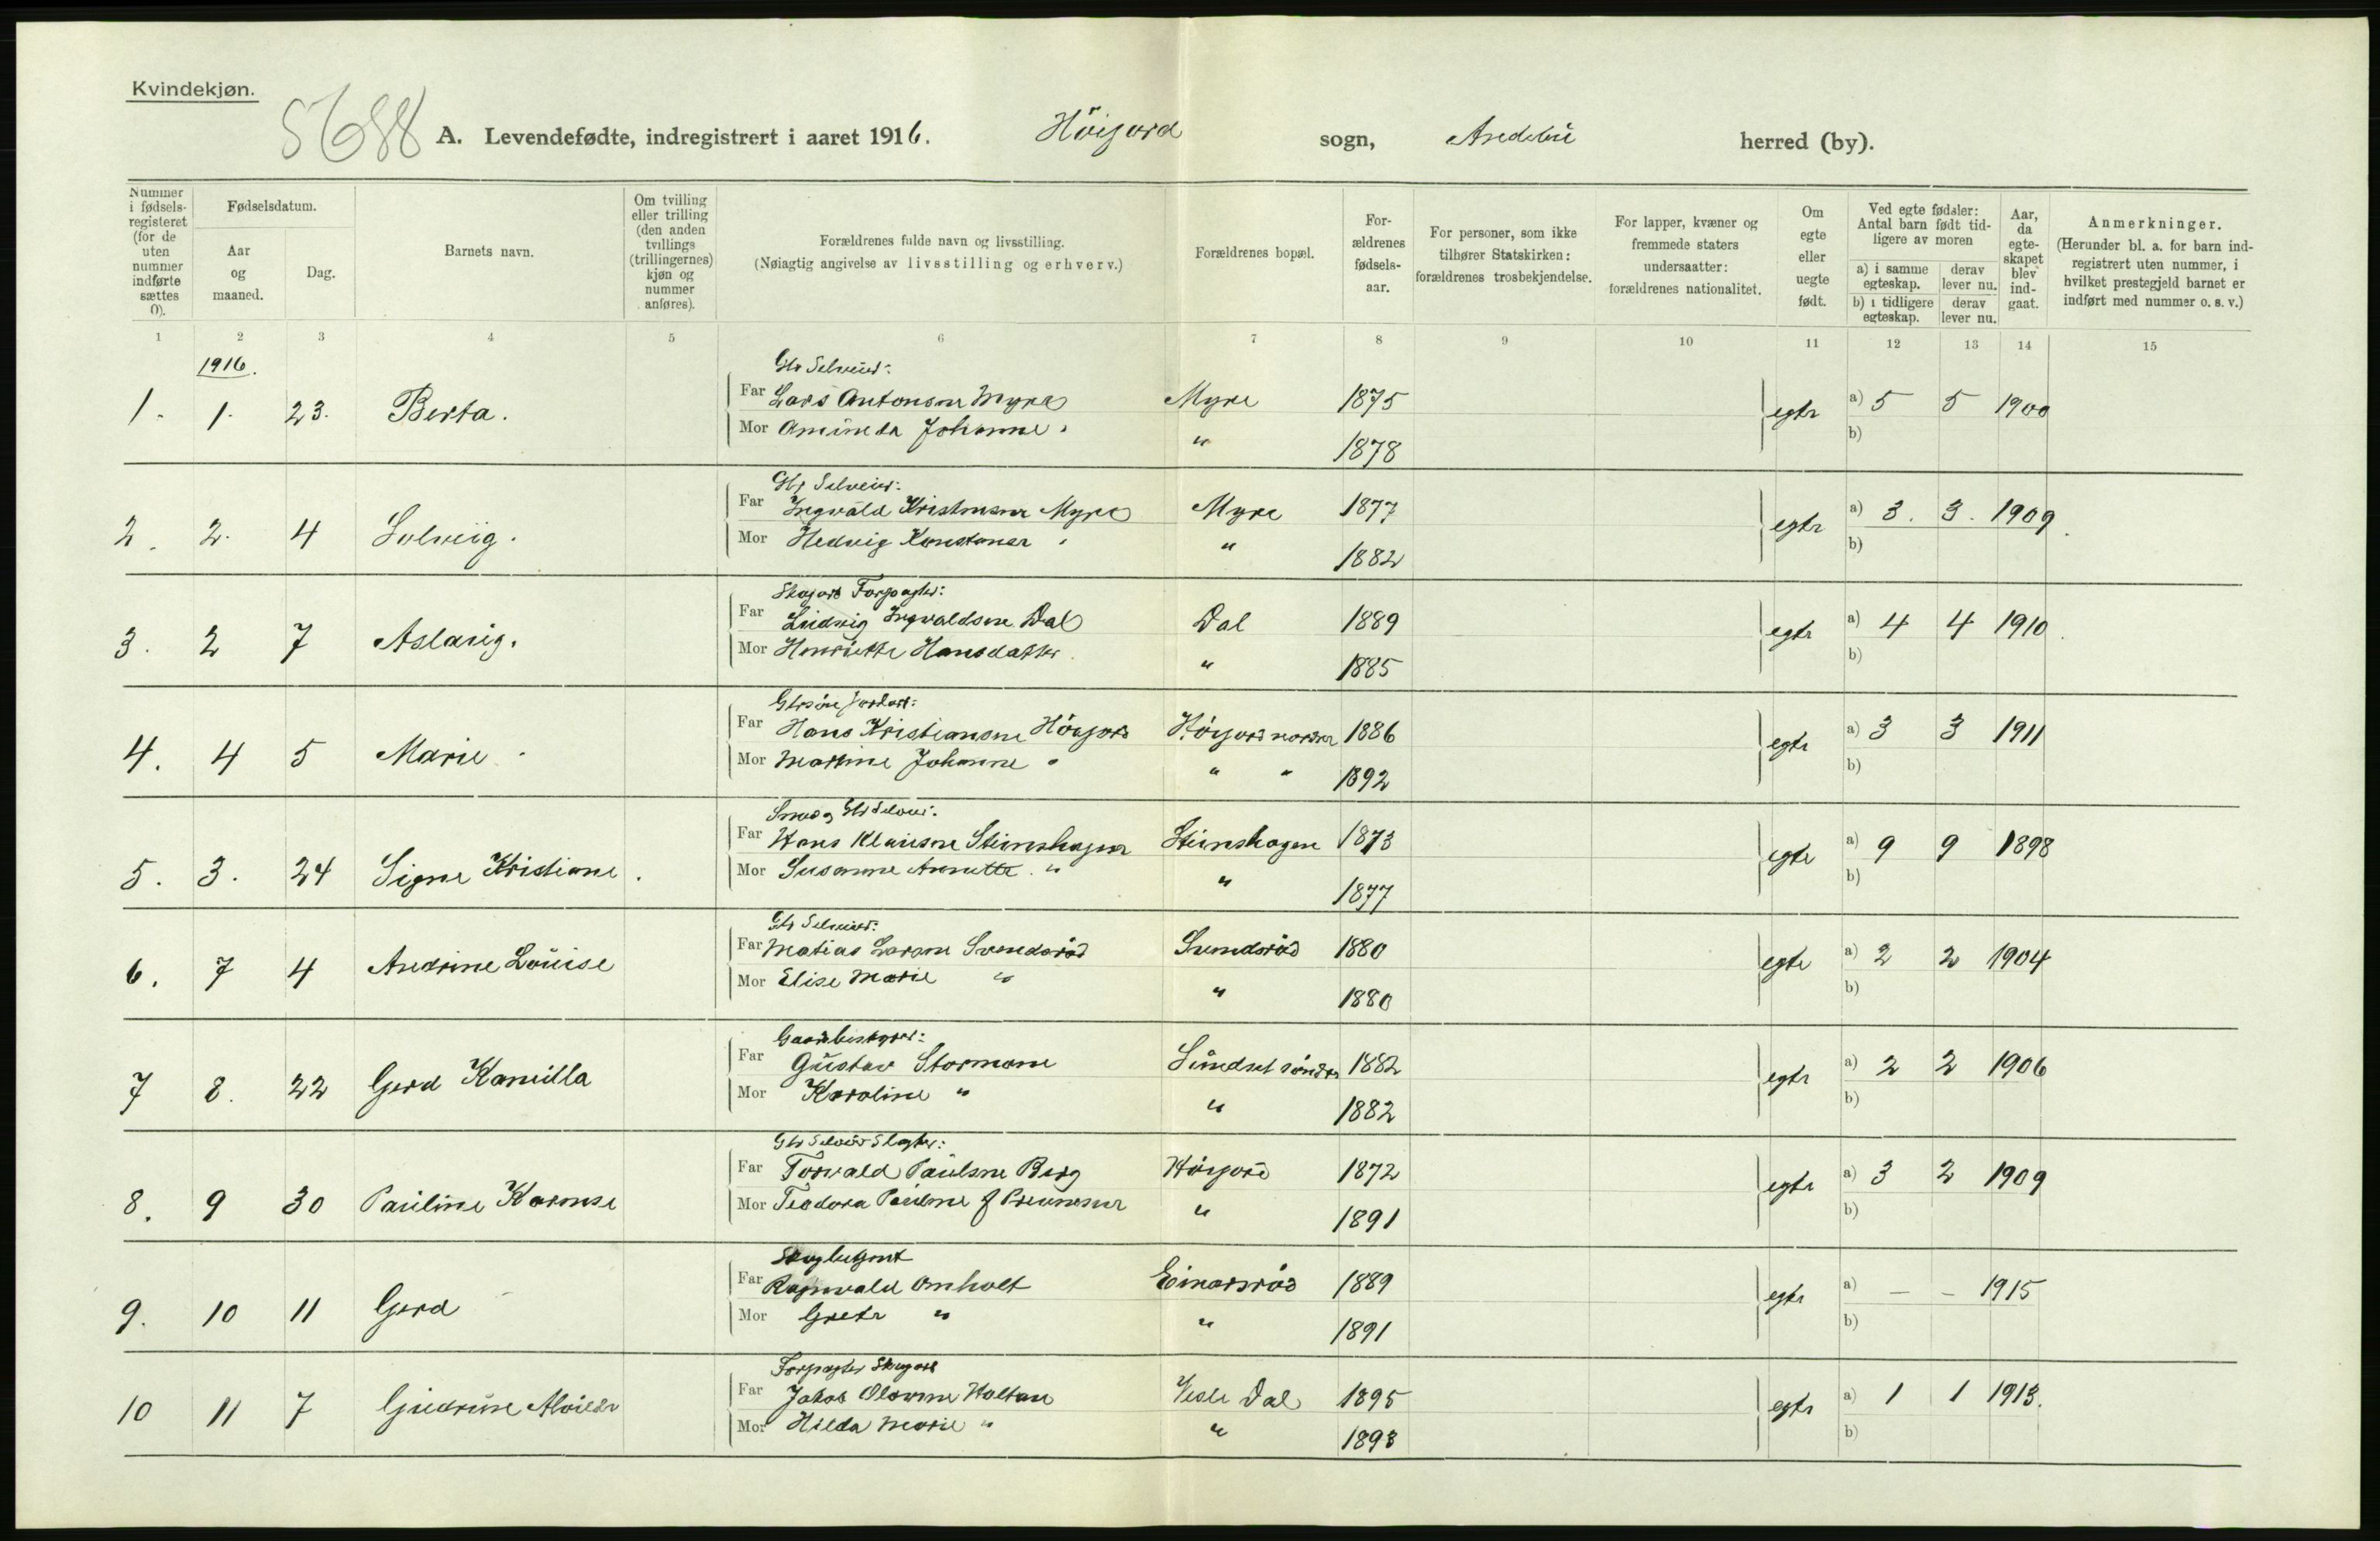 Kvindekjøn.
5688
A. Levendefødte, indregistrert i aaret 1916. Höijord sogn, Andebu herred (by).
Nummer i fødsels-registeret (for de uten nummer indførte sættes 0).
Fødselsdatum.
Aar og maaned.
Dag.
Barnets navn.
Om tvilling eller trilling (den anden tvillings (trillingernes) kjøn og nummer anføres).
Forældrenes fulde navn og livsstilling.
(Nøiagtig angivelse av livsstilling og erhverv.)
Forældrenes bopæl.
For-ældrenes fødsels-aar.
For personer, som ikke tilhører Statskirken: forældrenes trosbekjendelse.
For lapper, kvæner og fremmede staters undersaatter: forældrenes nationalitet.
Om egte eller uegte født.
Ved egte fødsler: Antal barn født tid-ligere av moren
a) i samme egteskap. derav lever nu.
b) i tidligere egteskap. derav lever nu.
Aar, da egte-skapet blev ind-gaat.
Anmerkninger.
(Herunder bl. a. for barn ind-registrert uten nummer, i hvilket prestegjeld barnet er indført med nummer o. s. v.)
1 2 3 4 5 6 7 8 9 10 11 12 13 14 15
1916.
Gbr Selveier:
1. 1. 23. Berta. Far Lars Antonsen Myre Myre 1875 egte a) 5 5 1900
Mor Johanne " " 1878 b)
Gbr Selveier:
2. 2. 4 Solveig. Far Ingvald Kristensen Myre Myre 1877 egte a) 3. 3. 1909.
Mor Hedvig " " 1882 b)
Forpagter:
3. 2 7 Aslaug. Far Ludvig Ingvaldsen Dal Dal 1889 egte a) 4 4 1910.
Mor Henriette Hansdatter " 1885 b)
4. 4 5 Marie. Far Hans Kristiansen Höijord Höijord nordre 1886 egte a) 3 3 1911
Mor Martine Johanne " " " 1892 b)
Smed og Gbr Selveier:
5. 3. 24 Signe Kristiane. Far Hans Klausen Stenshagen Stenshagen 1873 egte a) 9 9 1898
Mor Susanne Annette. " " 1877 b)
Gbr Selveier:
6. 7 4 Andrine Louise Far Matias Larsen Svendsröd Svendsröd 1880 egte a) 2 2 1904
Mor Elise Marie " " 1880 b)
Gaardbestyrer:
7 8. 22 Gerd Kamilla Far Gustav Stormoen Sundset söndre 1882 egte a) 2 2 1906
Mor Karoline " " 1882 b)
Gbr Selveier Slagter:
8. 9 30 Pauline Karense Far Torvald Paulsen Berg Höijord 1872 egte a) 3 2 1909
Mor Teodora Pauline f " 1891 b)
9. 10 11 Gerd Far Ragnvald Omholt Einarsröd 1889 egte a) – – 1915
Mor Grete " " 1891 b)
Forpagter
10 11 7 Gudrun Alvilde Far Jakob Olavsen Holtan Vesle Dal 1895 egte a) 1 1 1913.
Mor Hilda Marie " " 1893 b)